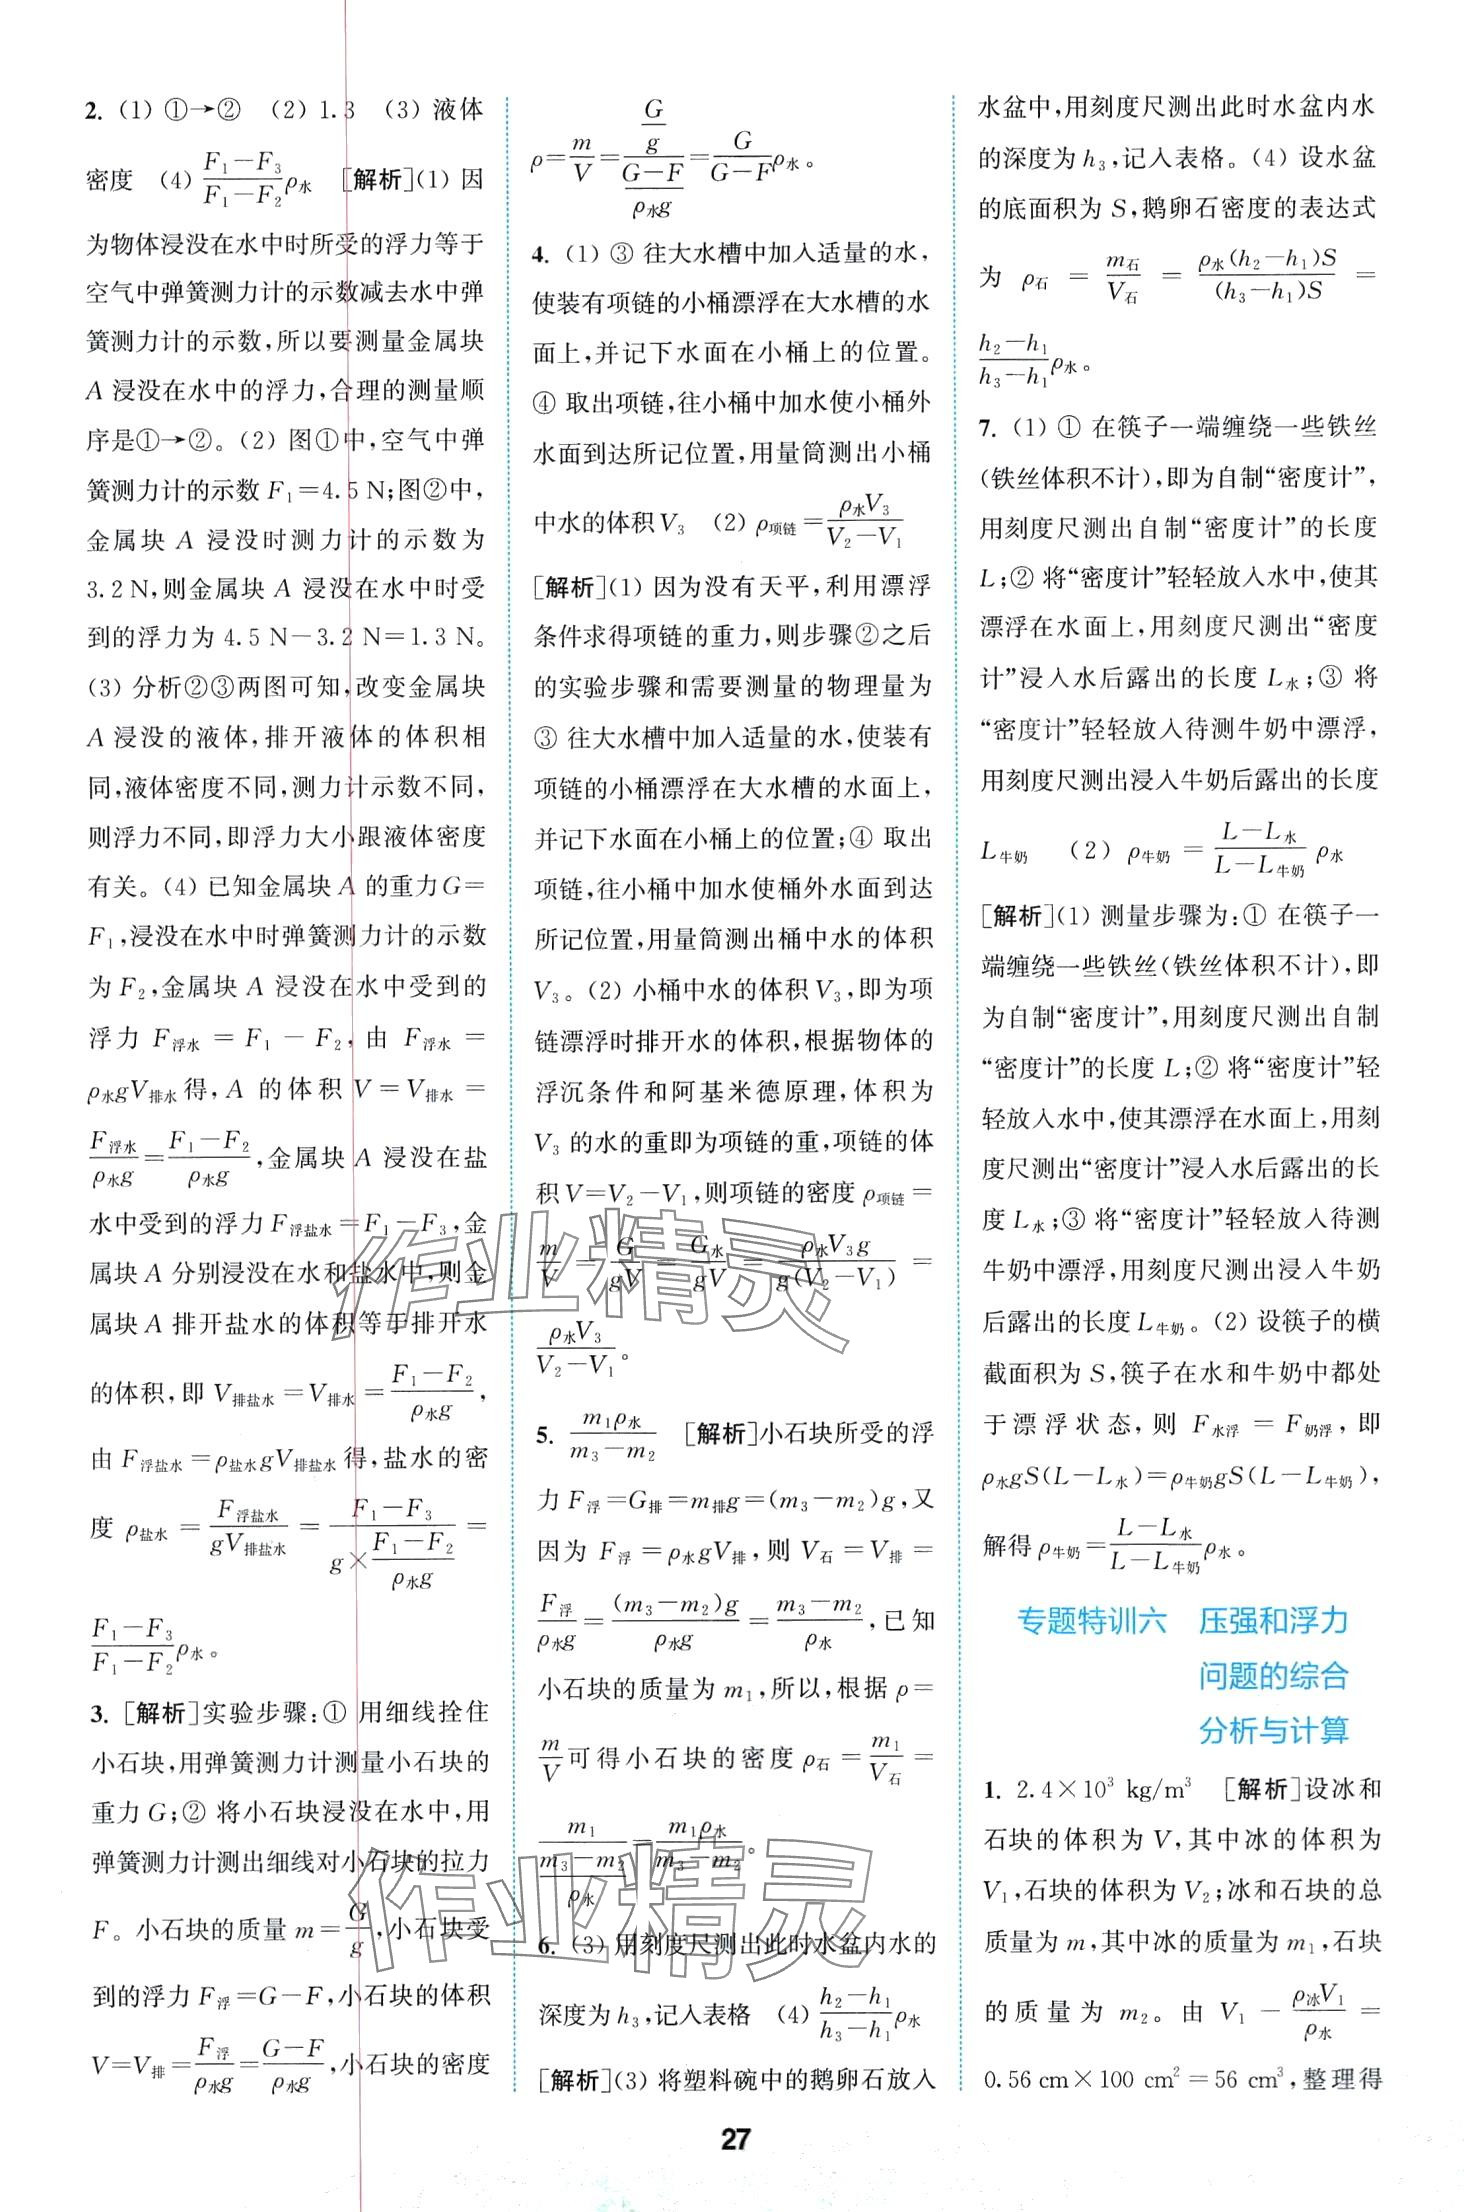 2. (1) ①→② (2) 1.3 (3) 液体
密度 (4) \frac{F₁-F₃}{F₁-F₂}ρ水 [解析](1) 因
为物体浸没在水中时所受的浮力等于
空气中弹簧测力计的示数减去水中弹
簧测力计的示数,所以要测量金属块
A 浸没在水中的浮力,合理的测量顺
序是①→②。(2) 图①中,空气中弹
簧测力计的示数 F₁=4.5 N;图②中,
金属块 A 浸没时测力计的示数为
3.2 N,则金属块 A 浸没在水中时受
到的浮力为 4.5 N-3.2 N=1.3 N。
(3) 分析②③两图可知,改变金属块
A 浸没的液体,排开液体的体积相
同,液体密度不同,测力计示数不同,
则浮力不同,即浮力大小跟液体密度
有关。(4) 已知金属块 A 的重力 G=
F₁,浸没在水中时弹簧测力计的示数
为 F₂,金属块 A 浸没在水中受到的
浮力 F浮水 = F₁ - F₂,由 F浮水 =
ρ水gV排水得,A 的体积 V=V排水=
\frac{F浮水}{ρ水g}=\frac{F₁-F₂}{ρ水g},金属块 A 浸没在盐
水中受到的浮力 F浮盐水=F₁-F₃,金
属块 A 分别浸没在水和盐水中,则金
属块 A 排开盐水的体积等于排开水
的体积,即 V排盐水=V排水=\frac{F₁-F₂}{ρ水g},
由 F浮盐水=ρ盐水gV排盐水得,盐水的密
度 ρ盐水 = \frac{F浮盐水}{gV排盐水} = \frac{F₁-F₃}{g×\frac{F₁-F₂}{ρ水g}} =
\frac{F₁-F₃}{F₁-F₂}ρ水。
3. [解析]实验步骤:① 用细线拴住
小石块,用弹簧测力计测量小石块的
重力 G;② 将小石块浸没在水中,用
弹簧测力计测出细线对小石块的拉力
F。小石块的质量 m=\frac{G}{g},小石块受
到的浮力 F浮=G-F,小石块的体积
V=V排=\frac{F浮}{ρ水g}=\frac{G-F}{ρ水g},小石块的密度
ρ=\frac{m}{V}=\frac{\frac{G}{g}}{\frac{G-F}{ρ水g}}=\frac{G}{G-F}ρ水。
4. (1) ③ 往大水槽中加入适量的水,
使装有项链的小桶漂浮在大水槽的水
面上,并记下水面在小桶上的位置。
④ 取出项链,往小桶中加水使小桶外
水面到达所记位置,用量筒测出小桶
中水的体积 V₃ (2) ρ项链=\frac{ρ水V₃}{V₂-V₁}
[解析](1) 因为没有天平,利用漂浮
条件求得项链的重力,则步骤②之后
的实验步骤和需要测量的物理量为
③ 往大水槽中加入适量的水,使装有
项链的小桶漂浮在大水槽的水面上,
并记下水面在小桶上的位置;④ 取出
项链,往小桶中加水使桶外水面到达
所记位置,用量筒测出桶中水的体积
V₃。(2) 小桶中水的体积 V₃,即为项
链漂浮时排开水的体积,根据物体的
浮沉条件和阿基米德原理,体积为
V₃ 的水的重即为项链的重,项链的体
积 V=V₂-V₁,则项链的密度 ρ项链=
\frac{m}{V} = \frac{G}{gV} = \frac{G水}{gV} = \frac{ρ水V₃g}{g(V₂-V₁)} =
\frac{ρ水V₃}{V₂-V₁}。
5. \frac{m₁ρ水}{m₃-m₂} [解析]小石块所受的浮
力 F浮=G排=m排g=(m₃-m₂)g,又
因为 F浮=ρ水gV排,则 V石=V排=
\frac{F浮}{ρ水g}=\frac{(m₃-m₂)g}{ρ水g}=\frac{m₃-m₂}{ρ水},已知
小石块的质量为 m₁,所以,根据 ρ=
\frac{m}{V}可得小石块的密度 ρ石=\frac{m₁}{V石}=
\frac{m₁}{\frac{m₃-m₂}{ρ水}}=\frac{m₁ρ水}{m₃-m₂}。
6. (3) 用刻度尺测出此时水盆内水的
深度为 h₃,记入表格 (4)\frac{h₂-h₁}{h₃-h₁}ρ水
[解析](3) 将塑料碗中的鹅卵石放入
水盆中,用刻度尺测出此时水盆内水
的深度为 h₃,记入表格。(4) 设水盆
的底面积为 S,鹅卵石密度的表达式
为 ρ石 = \frac{m石}{V石} = \frac{ρ水(h₂-h₁)S}{(h₃-h₁)S} =
\frac{h₂-h₁}{h₃-h₁}ρ水。
7. (1) ① 在筷子一端缠绕一些铁丝
(铁丝体积不计),即为自制“密度计”,
用刻度尺测出自制“密度计”的长度
L;② 将“密度计”轻轻放入水中,使其
漂浮在水面上,用刻度尺测出“密度
计”浸入水后露出的长度 L水;③ 将
“密度计”轻轻放入待测牛奶中漂浮,
用刻度尺测出浸入牛奶后露出的长度
L牛奶 (2) ρ牛奶=\frac{L-L水}{L-L牛奶}ρ水
[解析](1) 测量步骤为:① 在筷子一
端缠绕一些铁丝(铁丝体积不计),即
为自制“密度计”,用刻度尺测出自制
“密度计”的长度 L;② 将“密度计”轻
轻放入水中,使其漂浮在水面上,用刻
度尺测出“密度计”浸入水后露出的长
度 L水;③ 将“密度计”轻轻放入待测
牛奶中漂浮,用刻度尺测出浸入牛奶
后露出的长度 L牛奶。(2) 设筷子的横
截面积为 S,筷子在水和牛奶中都处
于漂浮状态,则 F水浮 = F奶浮,即
ρ水gS(L-L水)=ρ牛奶gS(L-L牛奶),
解得 ρ牛奶=\frac{L-L水}{L-L牛奶}ρ水。
专题特训六 压强和浮力
问题的综合
分析与计算
1. 2.4×10³ kg/m³ [解析]设冰和
石块的体积为 V,其中冰的体积为
V₁,石块的体积为 V₂;冰和石块的总
质量为 m,其中冰的质量为 m₁,石块
的质量为 m₂。由 V₁ - \frac{ρ冰V₁}{ρ水} =
0.56 cm×100 cm²=56 cm³,整理得
27
作业精灵
作业精灵